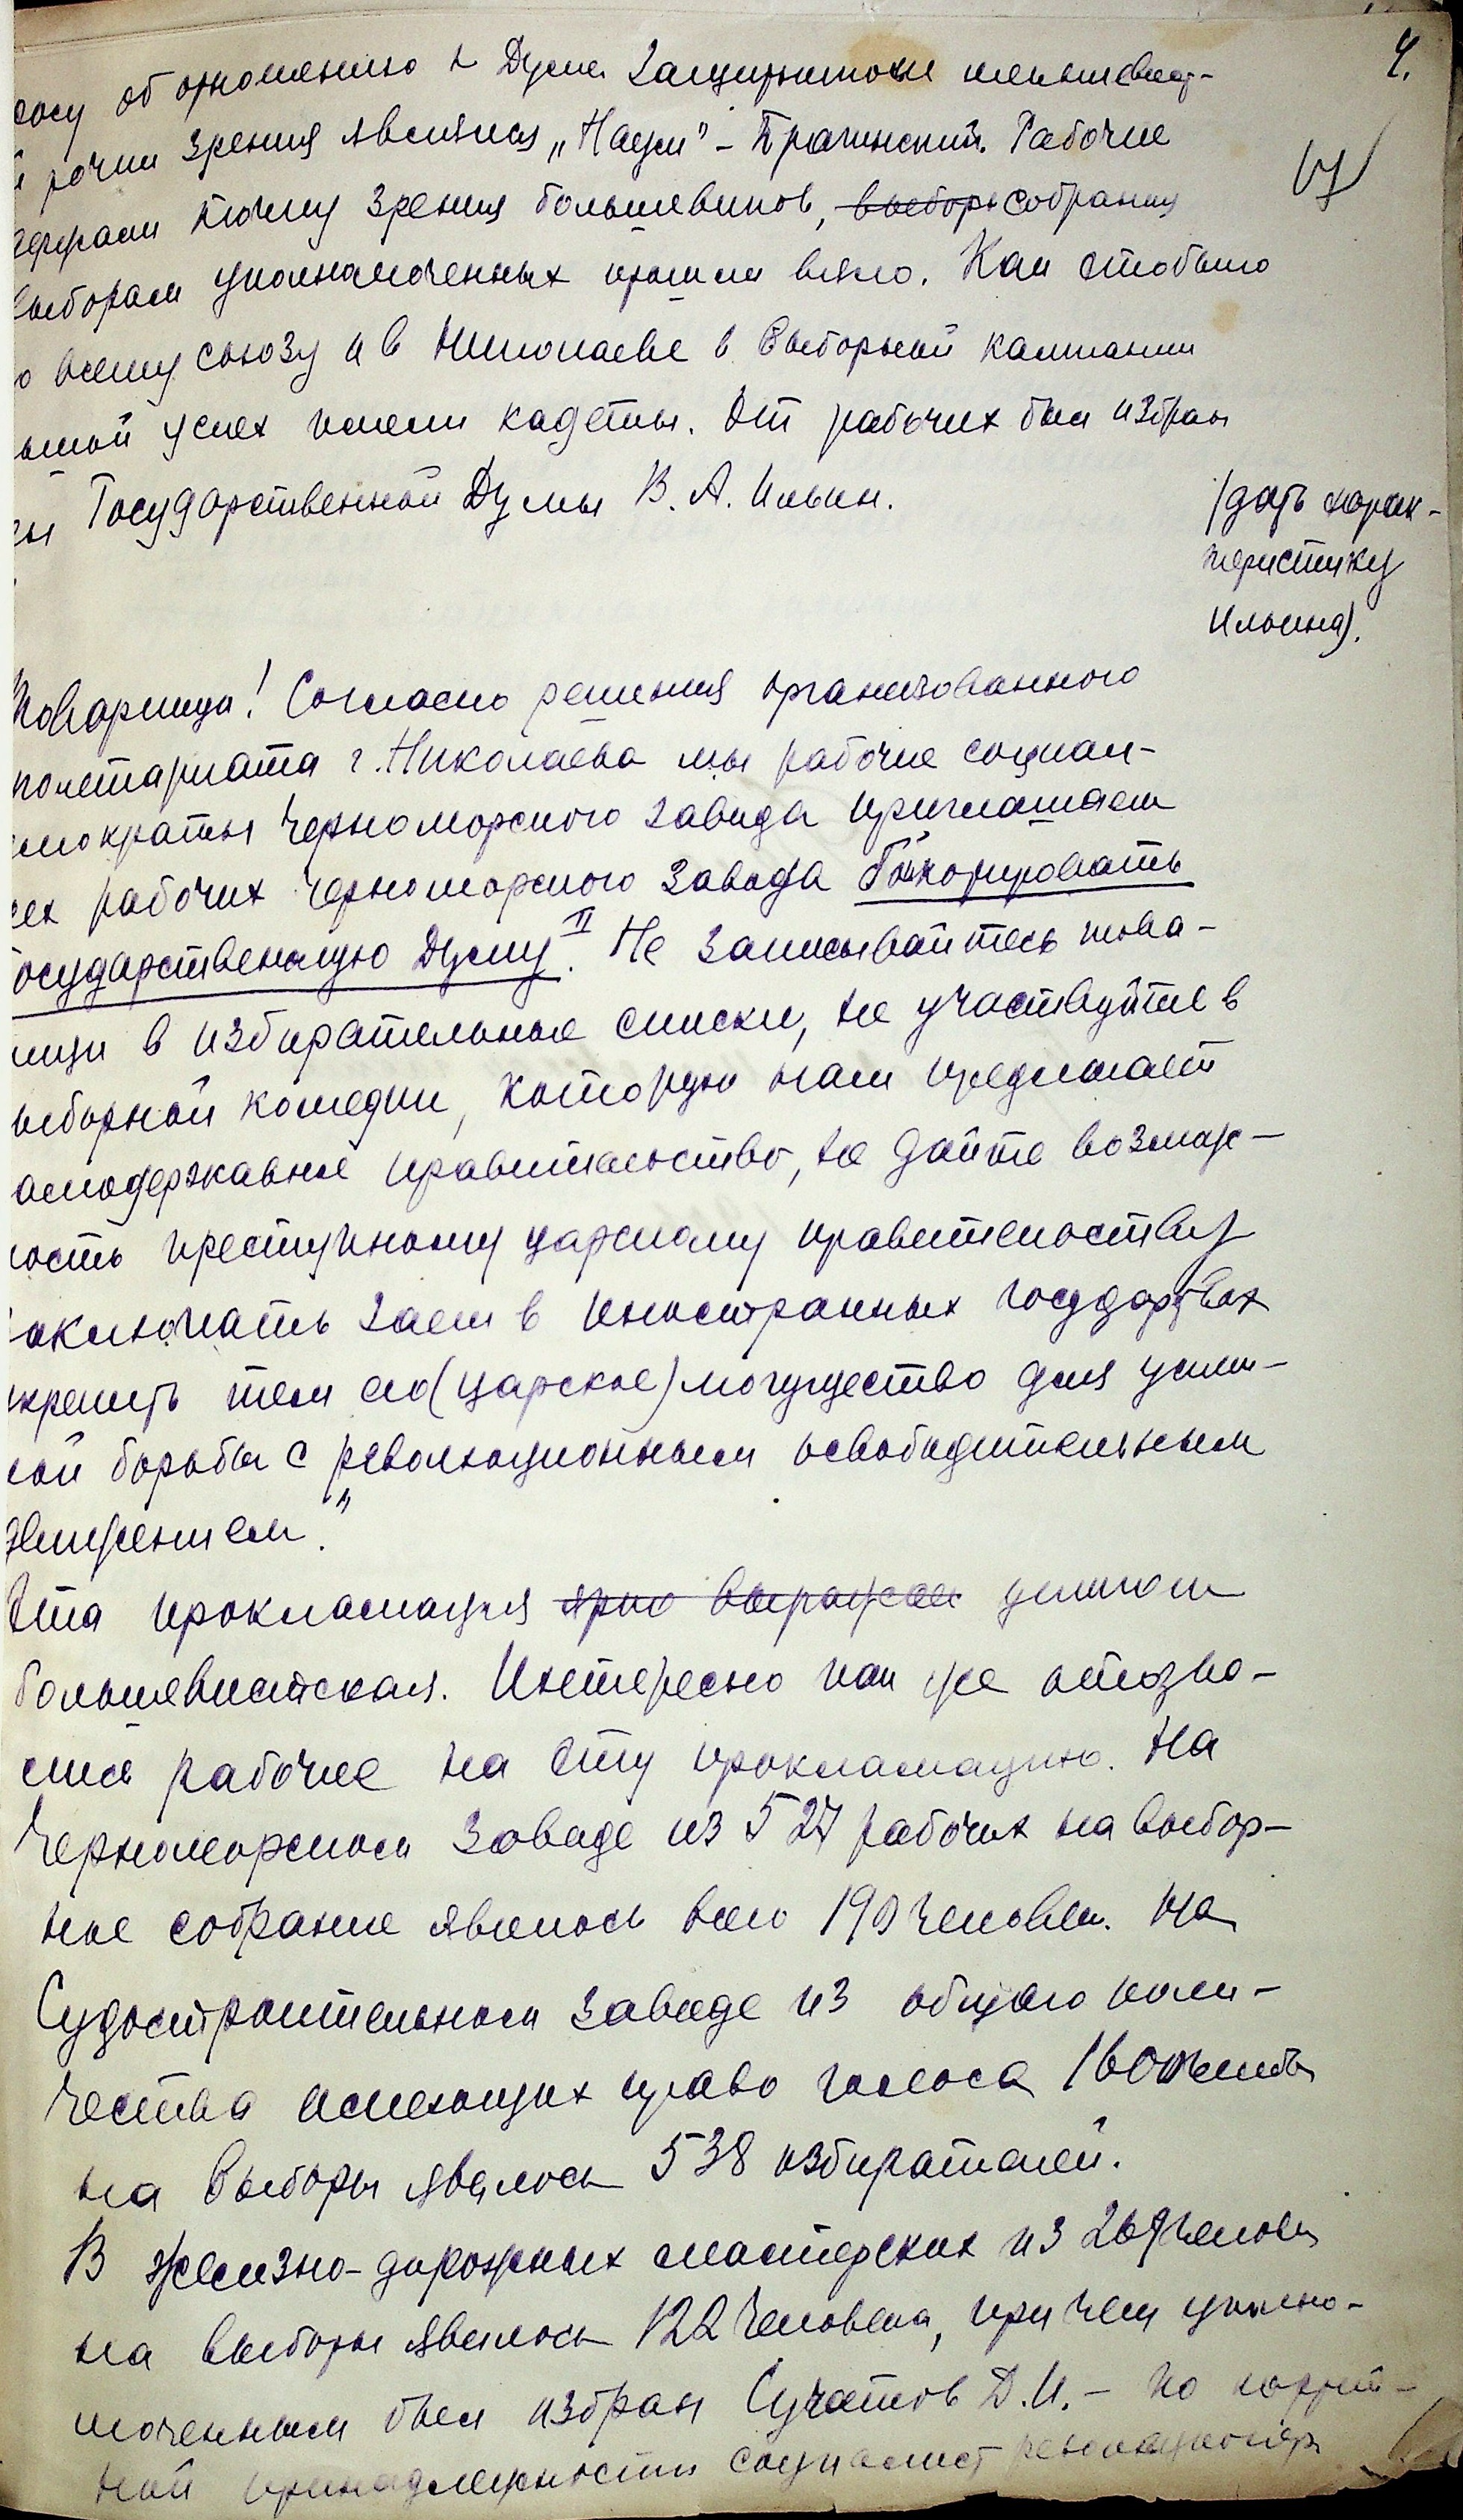 4.
сосу об отношению к Думе. Защитником меньшевист-
й точки зрения явлился „Наум" – Брагинский. Рабочие
держали точку зрения большевиков, выборы собрания
выборам уполномоченных прошли вяло. Как это было
о всему союзу и в Николаеве в выборной кампании
ьшой успех имели кадеты. От рабочих был избран
ны Государственной Думы В. А. Ильин.
(дать харак-
теристику
Ильина).
Товарищи! Согласно решения организованного
ролетариата г. Николаева мы рабочие социал-
емократы Черноморского завода приглашаем
сех рабочих Черноморского завода бойкотировать
осударственную Думу II. Не записывайтесь това-
ищи в избирательные списки, не участвуйте в
ыборной комедии, которую нам предлагает
амодержавное правительство, не дайте возмож-
ность преступному царскому правительству
аключать заем в иностранных государствах
крепить тем его (царское) могущество для усиле-
ной борьбы с революционным освободительным
движением."
Эта прокламация ярко выражен целиком
большевистская. Интересно как же отозва-
лись рабочие на эту прокламацию. На
Черноморском заводе из 527 рабочих на выбор-
ное собрание явилось всего 190 человек. На
Судостроительном заводе из общего коли-
чества имеющих право голоса 1600
на выборы явилось 538 избирателей.
В железно-дорожных мастерских из 269 человек
на выборы явилось 122 человека, при чем уполно-
моченным был избран Сучатов Д.И. – по партий-
ной принадлежности социалист революционер